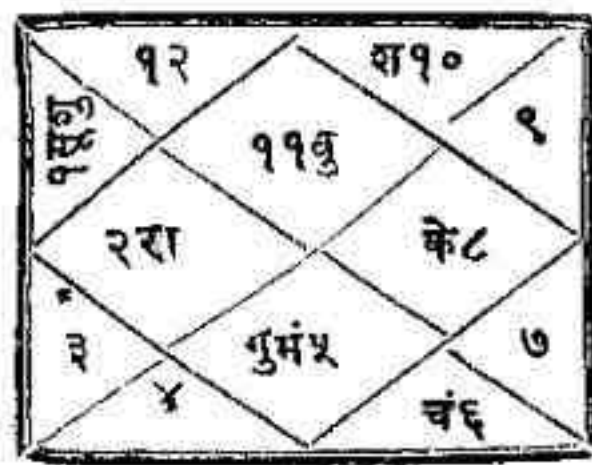 १२ श१०
१सूशु ११बु ९
२रा के८
३ गुमं५ ७
४ चं६